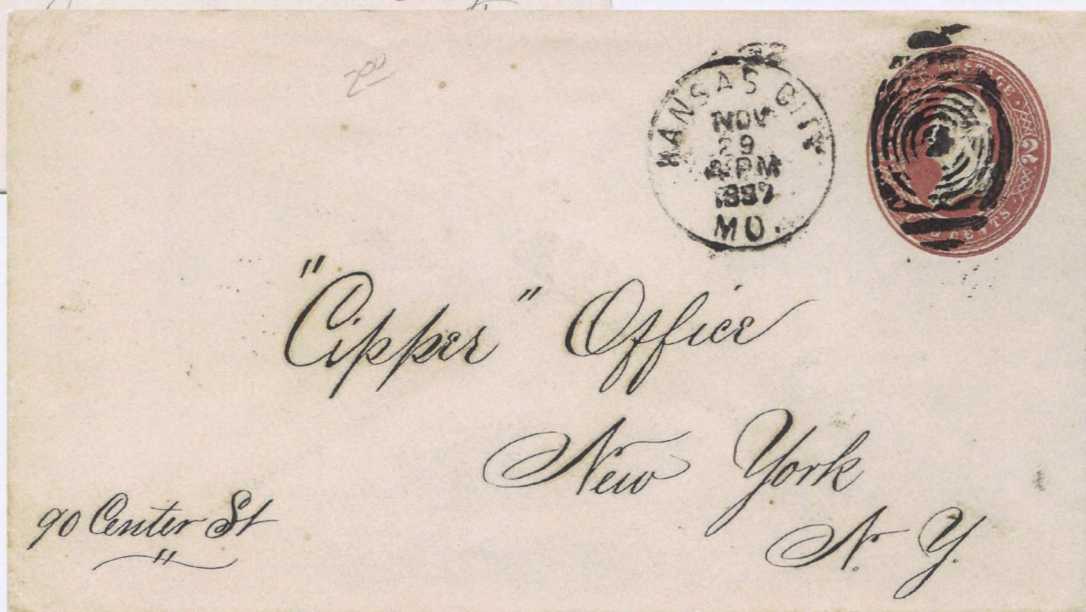 KANSAS CITY
NOV
29
4 PM
1887
MO.
2
CENTS
"Cipper" Office
New York
N. Y.
90 Center St
"